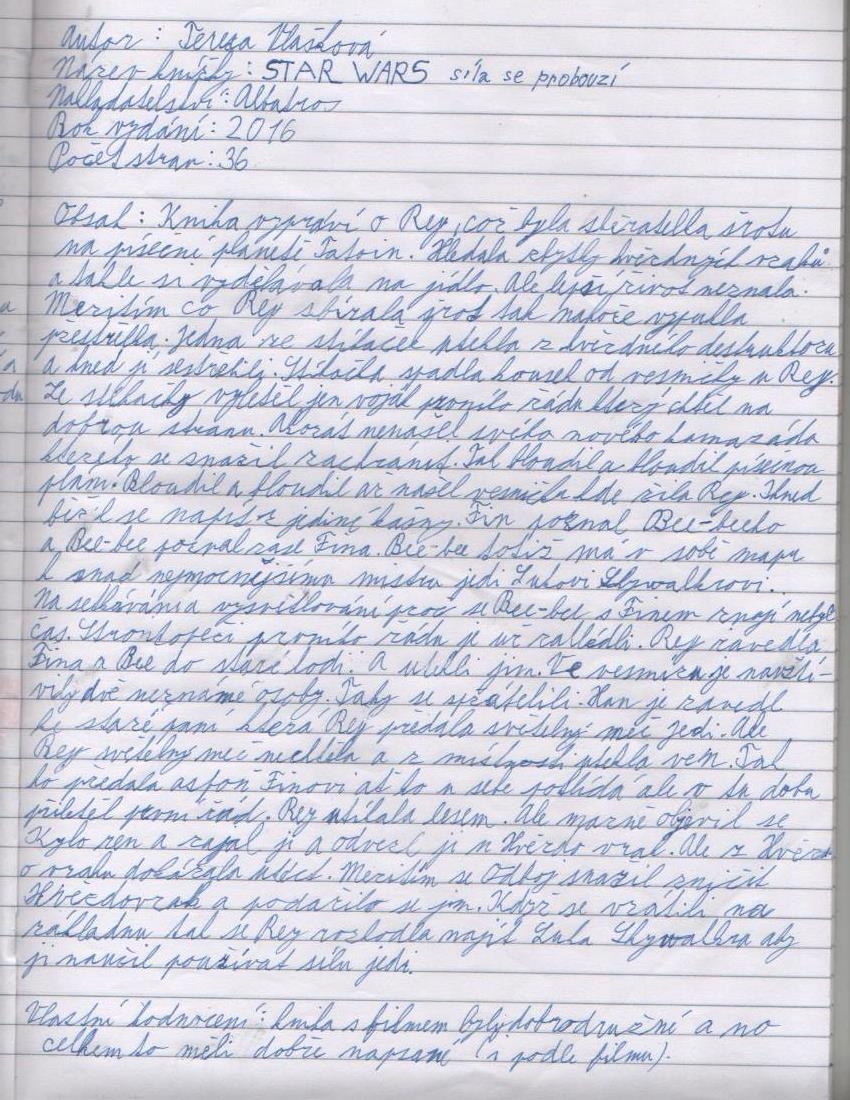 Autor : Tereza Vlášková
Název knížky : STAR WARS síla se probouzí
Nakladatelství : Albatros
Rok vydání : 2016
Počet stran : 36
Obsah : Kniha vypráví o Rey, což byla sběratelka šrotu
na písečné planetě Tatoin. Hledala zbytky hvězdných vraků
a takle si vydělávala na jídlo. Ale lepší život neznala.
Mezitím co Rey sbírala šrot tak nahoře vypukla
přestřelka. Jedna ze stíhaček utekla z hvězdního destruktoru
a hned jí sestřelili. Stíhačka spadla kousek od vesničky u Rey.
Ze stíhačky vyletěl jen voják prvního řádu který chtěl na
dobrou stranu. Akorát nenašel svého nového kamaráda
kterého se snažil zachránit. Tak bloudil a bloudil písčinou
plání. Bloudil a bloudil až našel vesničku kde žila Rey. Ihned
běžel se napít z jediné kašny. Fin poznal Bee-beeho
a Bee-bee poznal zase Fina. Bee-bee totiž má v sobě mapu
k snad nejmocnějšímu mistru jedi Lukovi Skywalkrovi.
Na setkávání a vysvětlování proč se Bee-bee s Finem znají nebyl
čas. Stromtopeči prvního řádu je už zahlédli. Rey zavedla
Fina a Bee do staré lodi. A utekli jim. Ve vesmíru je navští-
vily dvě neznámé osoby. Taky se spřátelili. Han je zavedl
ke staré paní která Rey předala světelný meč Jedi. Ale
Rey světelný meč nechtěla a z místnosti utekla ven. Tak
ho předala aspoň Finovi ať ho u sebe pohlídá ale v tu dobu
přiletěl první řád. Rey utíkala lesem. Ale marně objevil se
Kylo ren a zajal ji a odvezl ji u Hvězdo vrah. Ale z Hvězd-
o vrahu dokázala utéct. Mezitím se Odboj snažil zničit
Hvězdovrah a podařilo se jim. Když se vrátili na
základnu tak se Rey rozhodla najít Luka Skywalkra aby
ji naučil používat sílu jedi.
Vlastní hodnocení : kniha s filmem byly dobrodružné a no
celkem to měli dobře napsané (i podle filmu).